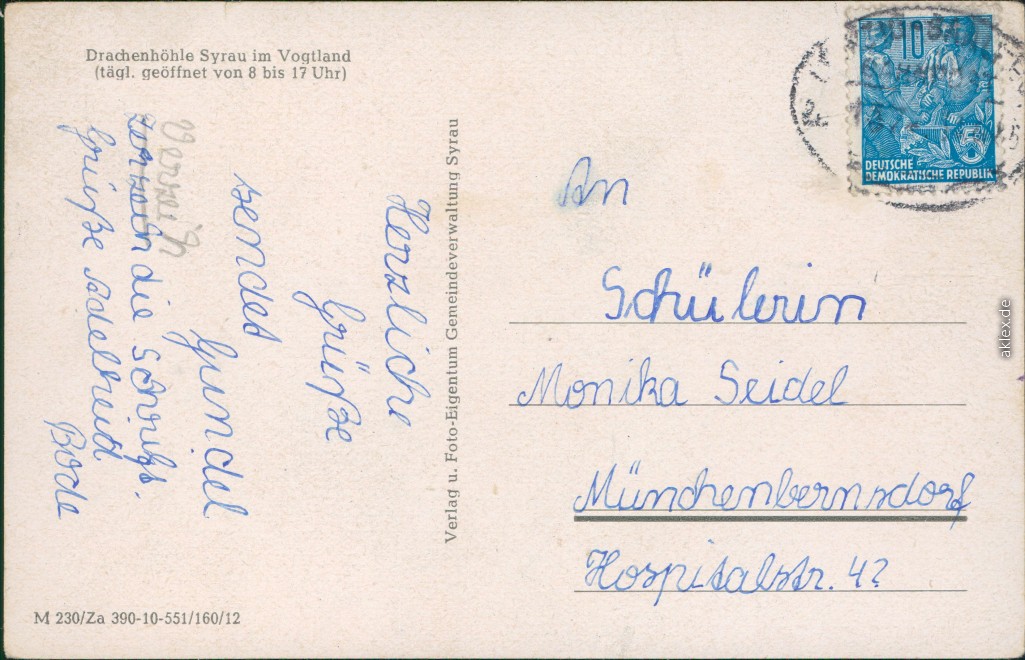 Drachenhöhle Syrau im Vogtland
(tägl. geöffnet von 8 bis 17 Uhr)
Herzliche
Grüße
sendet
Gundel
die Schrift.
Grüße Adelheid
Bode
Verlag u. Foto-Eigentum Gemeindeverwaltung Syrau
M 230/Za 390-10-551/160/12
10
5
DEUTSCHE
DEMOKRATISCHE REPUBLIK
An
Schülerin
Monika Seidel
Münchenbernsdorf
Hospitalstr. 42
aklex.de